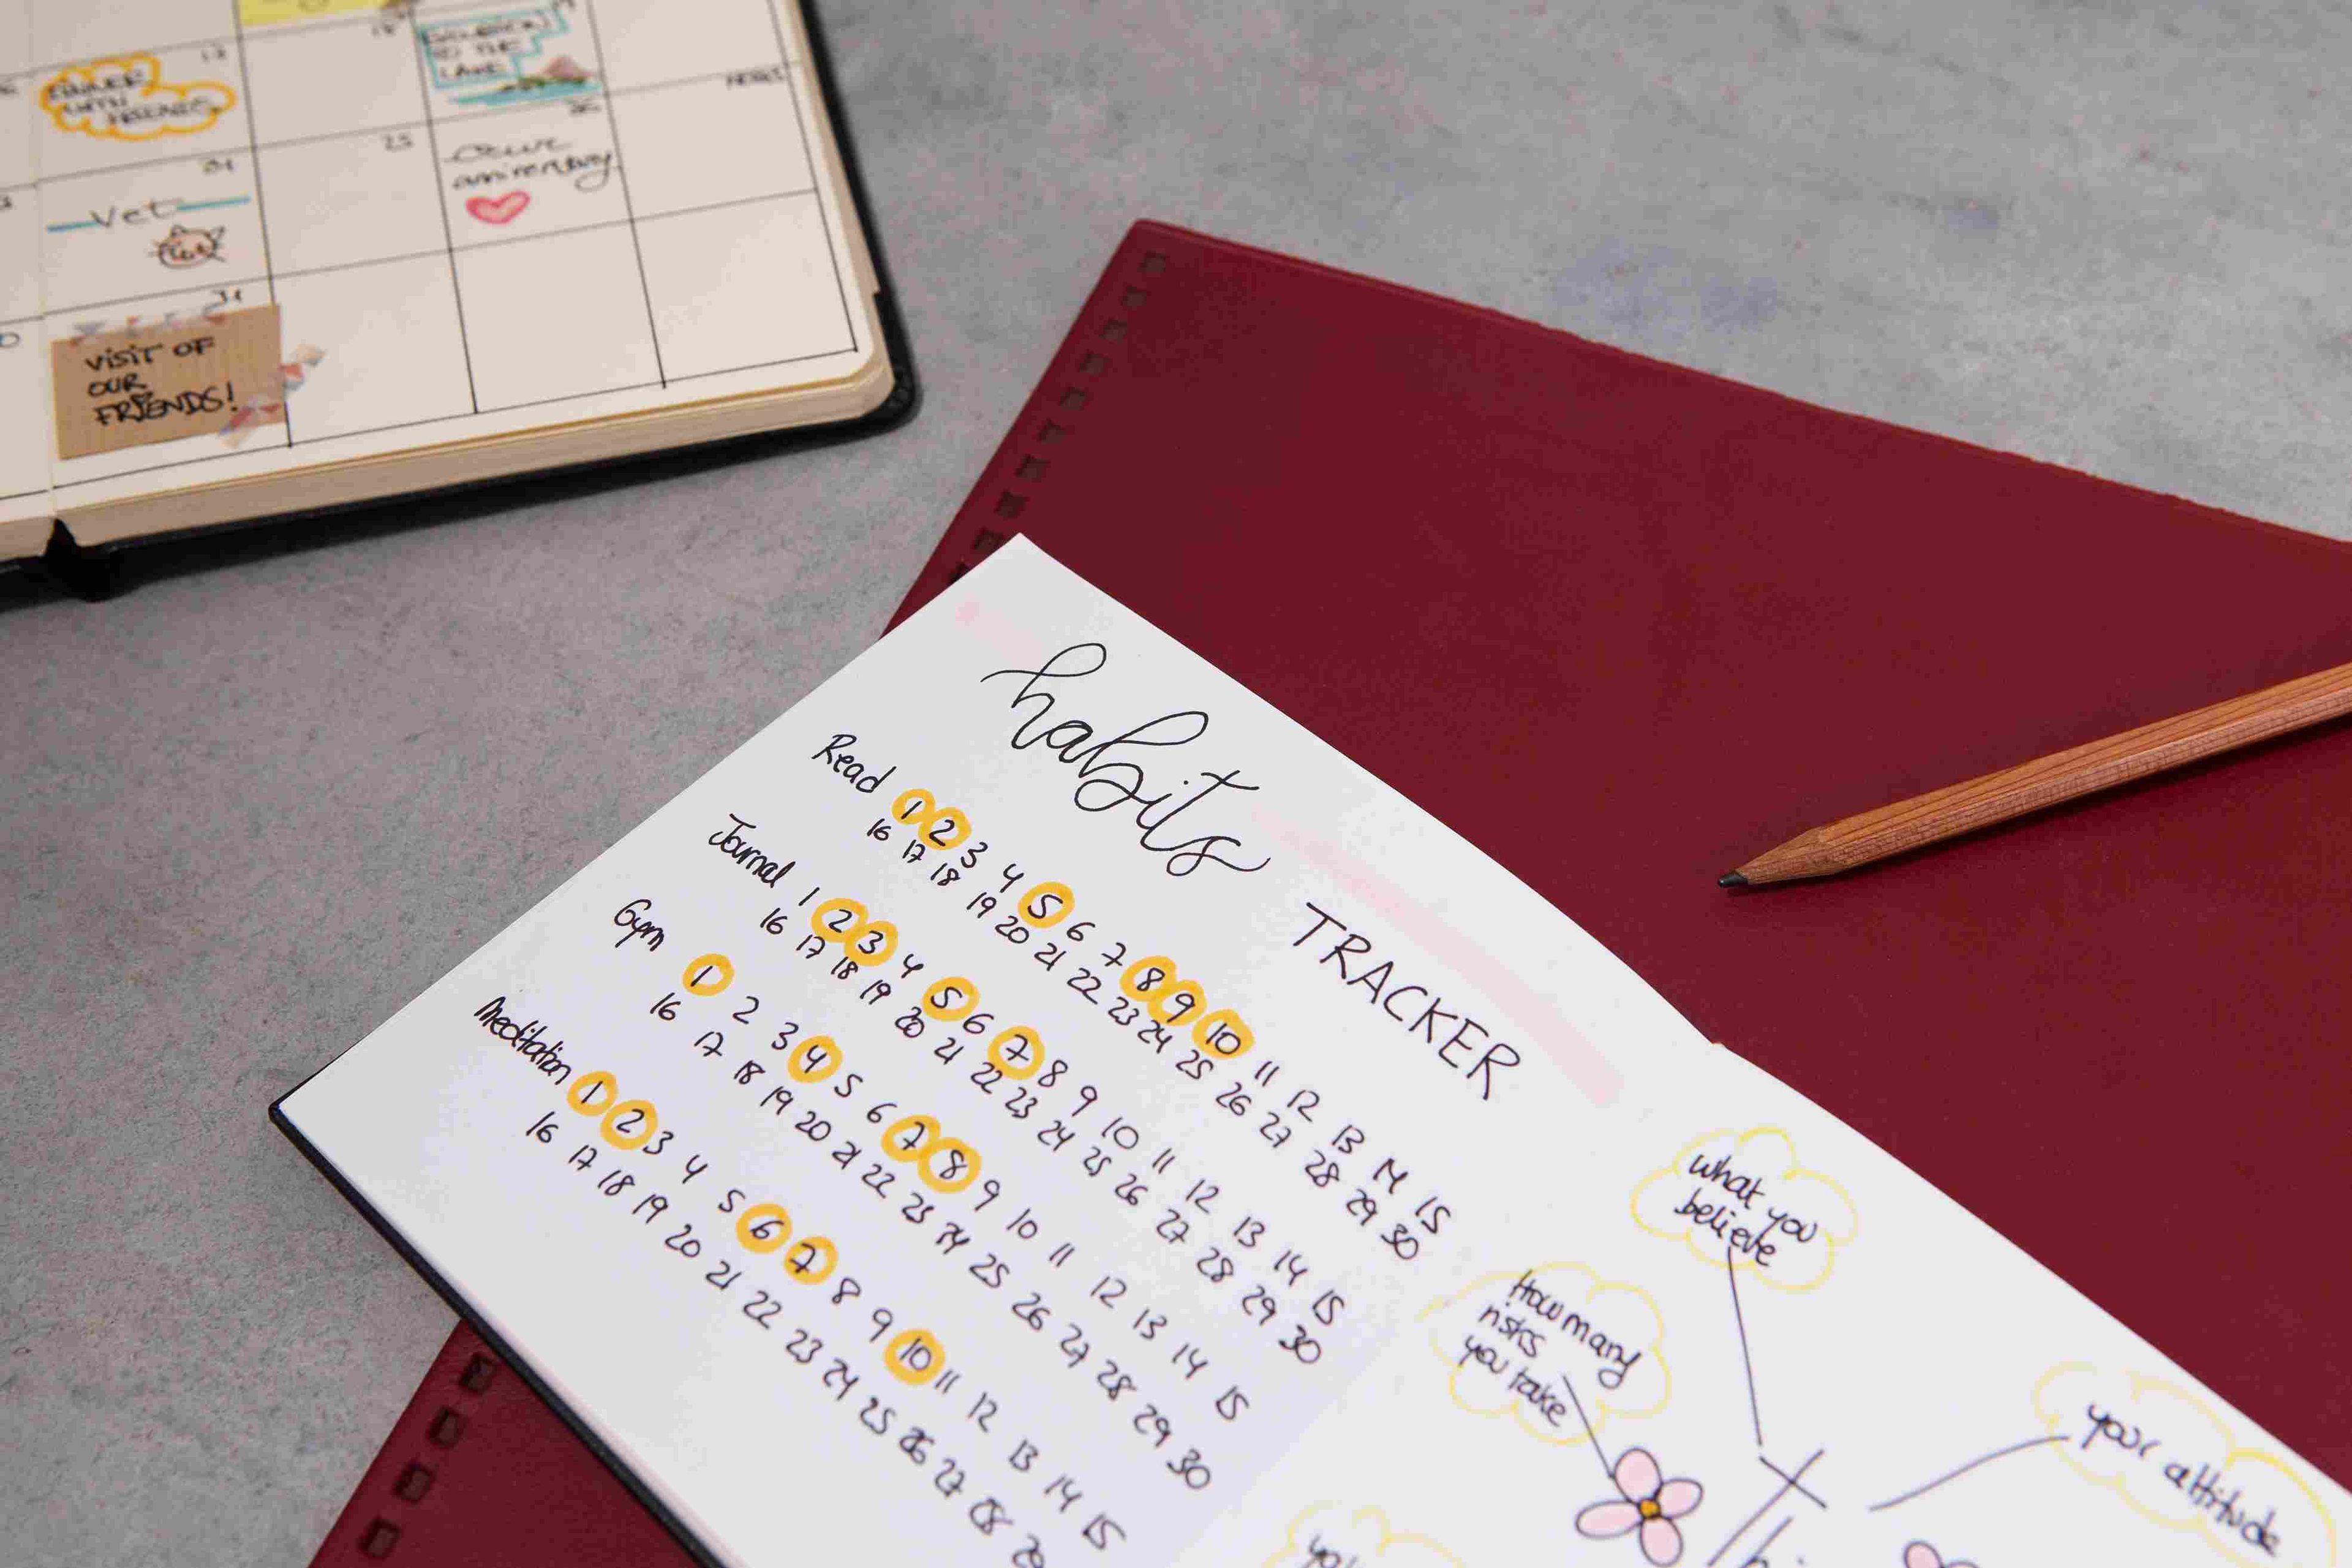 17
18
19
DINNER
WITH
FRIENDS
TO THE
LAKE
NOTES
24
25
26
Vet
Our
anniversary
31
VISIT OF
OUR
FRIENDS!
habits
TRACKER
Read 1 2 3 4 5 6 7 8 9 10 11 12 13 14 15
16 17 18 19 20 21 22 23 24 25 26 27 28 29 30
Journal 1 2 3 4 5 6 7 8 9 10 11 12 13 14 15
16 17 18 19 20 21 22 23 24 25 26 27 28 29 30
Gym 1 2 3 4 5 6 7 8 9 10 11 12 13 14 15
16 17 18 19 20 21 22 23 24 25 26 27 28 29 30
Meditation 1 2 3 4 5 6 7 8 9 10 11 12 13 14 15
16 17 18 19 20 21 22 23 24 25 26 27 28 29
what you
believe
How many
risks
you take
your attitude